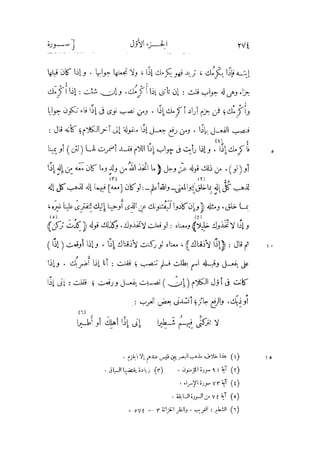 ٢٧٤ الجزء الأول [ســورة
إليه فإذًا يكرمك ، تريد فهو يكرمك إذًا ، ولا تجعلنها جوابها . وإذا كان قبلها
جزاء وهى له جواب قلت : إن تأتنى إذًا أُكرِمْك. وإن شئت : إذًا أُكرِمُك
وأكرِمَك ؛ فمن جزم أراد أكرمك إذًا . ومن نصب نوى فى إذًا فاء تكون جوابا
فنصب الفعــل بإذًا . ومن رفع جعــل إذًا منقولة إلى آخر الكلام؛ كأنه قال :
٥ فأكرمك إذًا . وإذا رأيت فى جواب إذًا اللام فقــد أضمرت لهــا (لئن) أو يمينا
أو (لو) . من ذلك قوله عزّ وجل ﴿ما اتَّخَذَ اللهُ من ولَدٍ وما كان مَعَه مِن إلهٍ إذًا
لذهب كلُّ إلهٍ بما خلق﴾ والمعنى ـ والله أعلم ـ : لو كان [معه] فيهما إله لذهب كلّ إله
بمــا خلق. ومثله ﴿وإن كادوا ليَفْتِنونك عن الذى أوحينا إليك لتفترىَ علينا غيره،
وإذًا لاتَّخذوك خليلًا﴾ ومعناه : لو فعلت لاتخذوك. وكذلك قوله ﴿كِدْتَ تركن﴾
١٠ ثم قال : ﴿إذًا لأذقناك﴾ ، معناه لو ركنت لأذقناك إذًا . وإذا أوقعت (إذًا)
على يفعــل وقبــله اسم بطلت فــلم تنصب ؛ فقلت : أنا إذًا أضرِبُك . وإذا
كانت فى أوّل الكلام (إنّ) نصبــت يفعــل ورفعت ؛ فقلت : إنى إذًا
أوذِيَك. والرفع جائز؛ أنشدنى بعض العرب :
لا تتركنِّى فيهــم شَــطِيرا إنى إذًا أهلِكَ أو أطــيرا
١٥ (١) هذا خلاف مذهب البصريين فليس عندهم إلا الجزم .
(٢) آية ٩١ سورة المؤمنون . (٣) زيادة يقتضيها السياق .
(٤) آية ٧٣ سورة الإسراء .
(٥) آية ٧٤ من السورة السابقة .
(٦) الشطير : الغريب . وانظر الخزانة ٣ ــ ٥٧٤ .